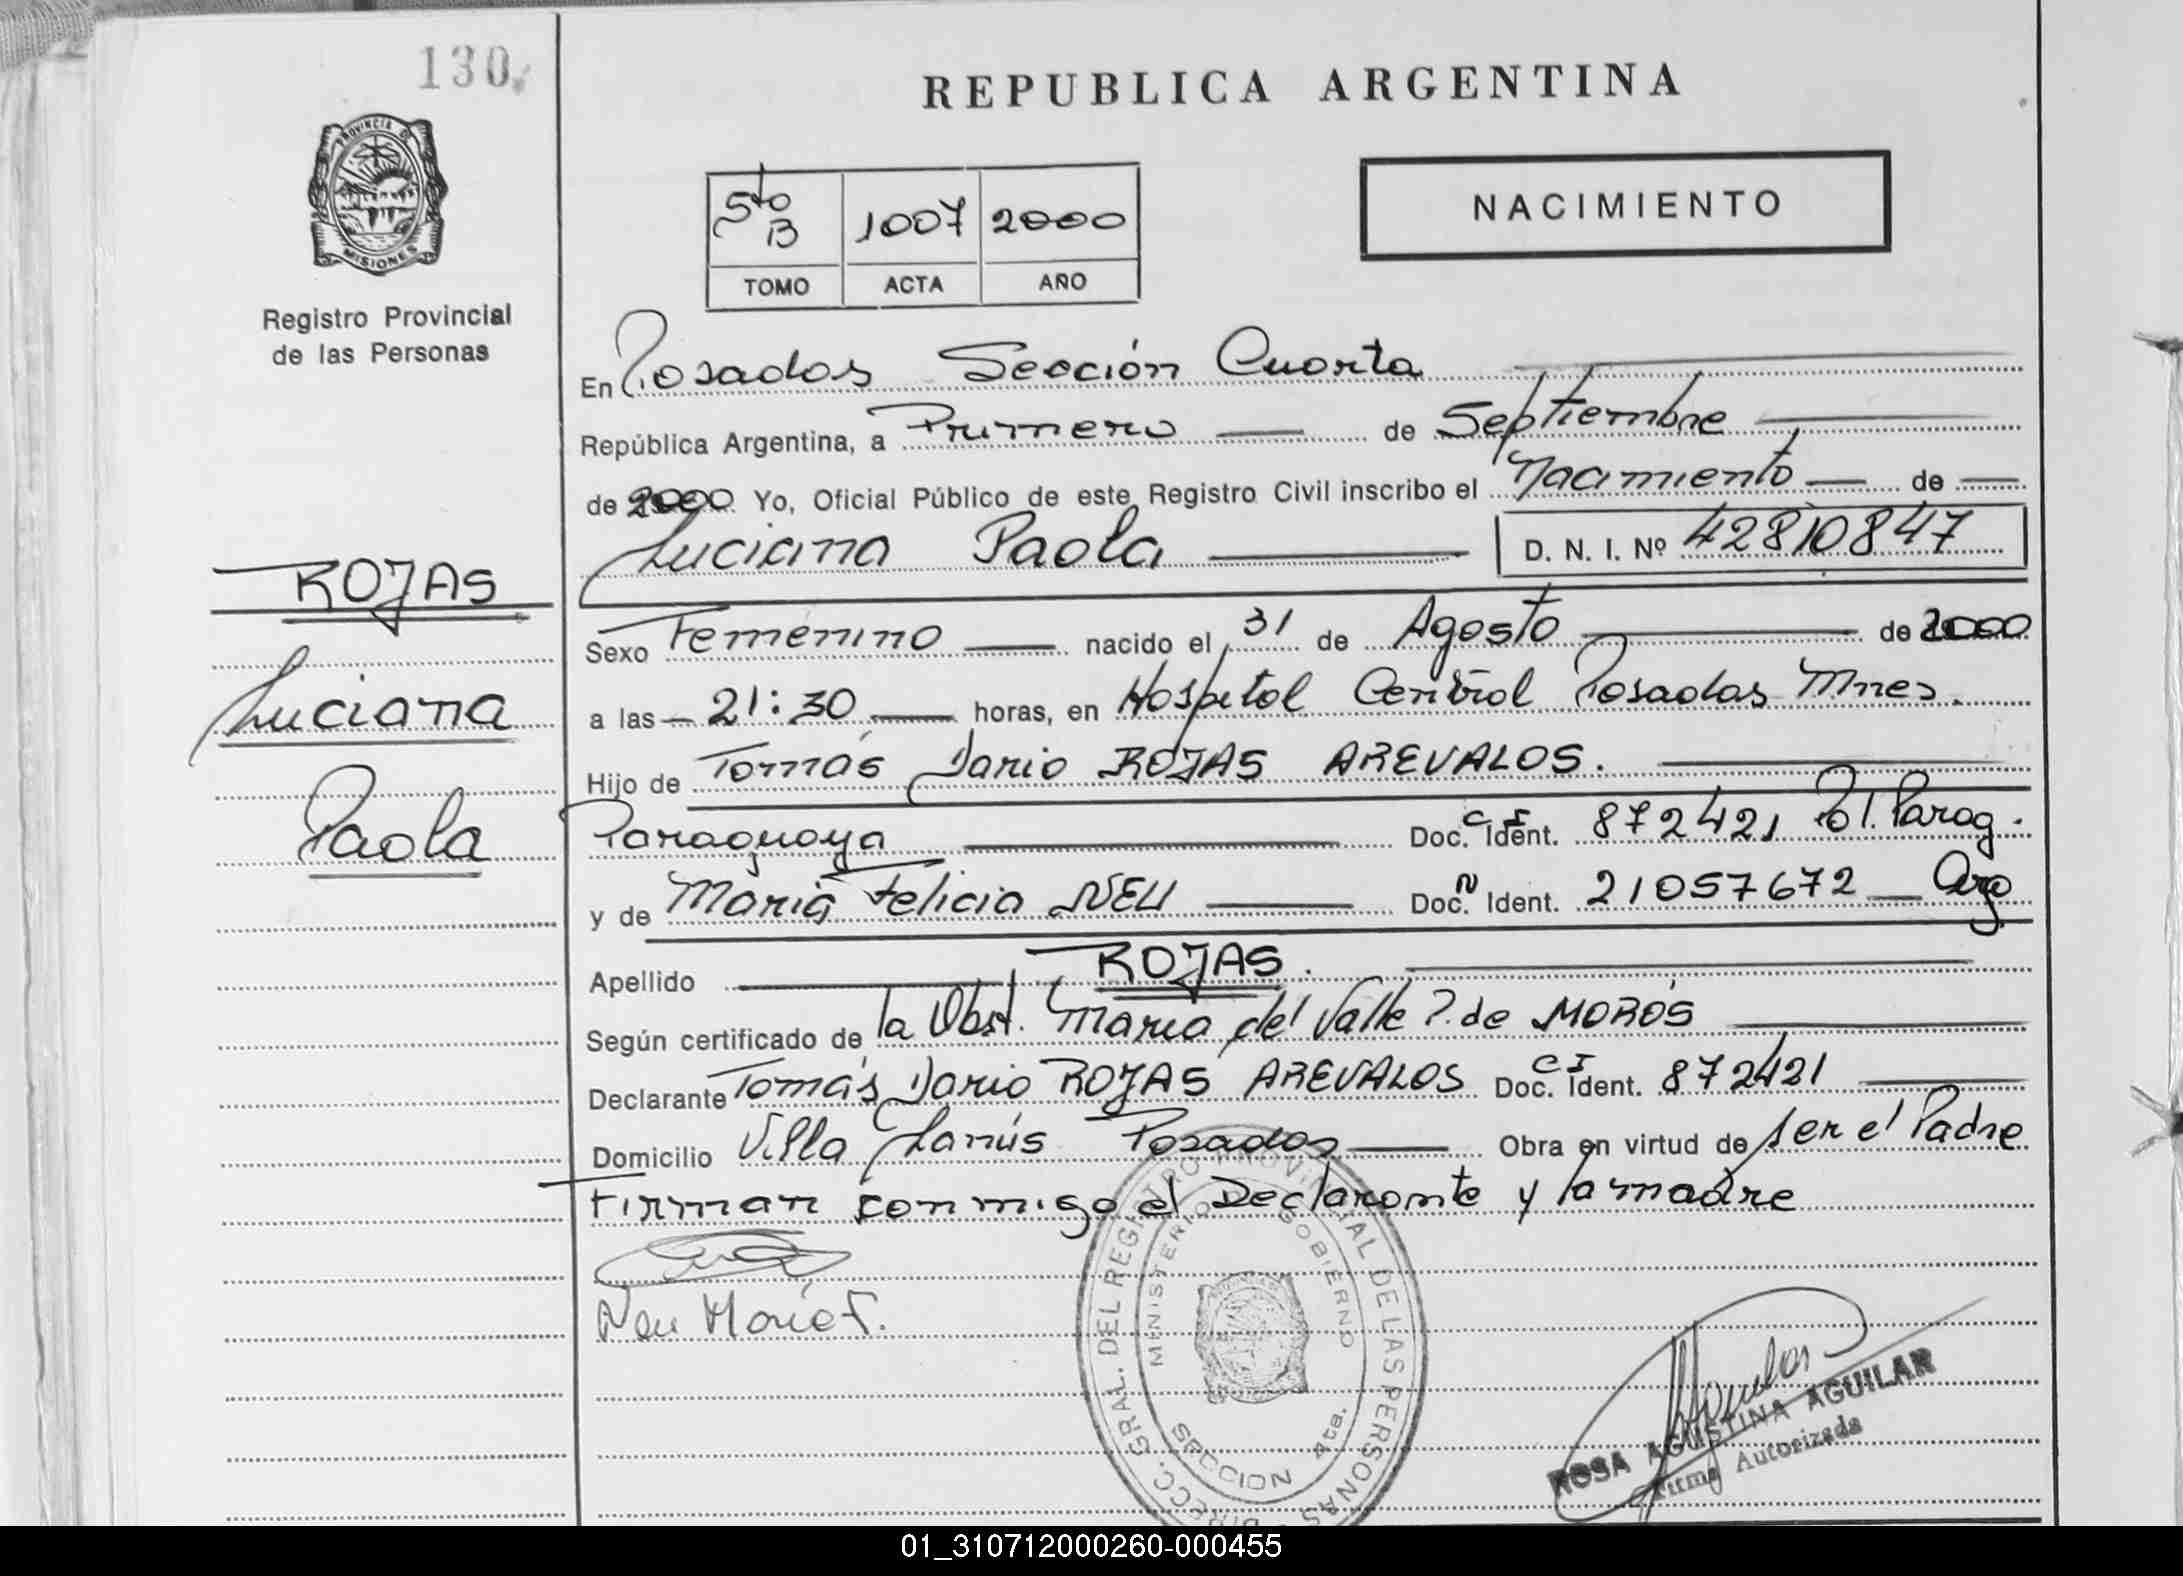 130
REPUBLICA ARGENTINA
PROVINCIA DE
MISIONES
Registro Provincial
de las Personas
5to B 1007 2000
TOMO ACTA AÑO
NACIMIENTO
En Posadas Sección Cuarta
República Argentina, a Primero de Septiembre
de 2000 Yo, Oficial Público de este Registro Civil inscribo el Nacimiento de
Luciana Paola D. N. I. Nº 42810847
ROJAS
Luciana
Paola
Sexo Femenino nacido el 31 de Agosto de 2000
a las 21:30 horas, en Hospital Central Posadas Mnes.
Hijo de Tomás Dario ROJAS AREVALOS.
Paraguaya Doc. Ident. C I 872421 Pol. Parag.
y de Maria Felicia NEU Doc. N Ident. 21057672 Arg
Apellido ROJAS.
Según certificado de la Obst. Maria del Valle P. de MOROS
Declarante Tomás Dario ROJAS AREVALOS Doc. Ident. C I 872421
Domicilio Villa Lanús Posadas Obra en virtud de ser el Padre
Firman conmigo el Declarante y la madre
Neu Maria F.
DIRECC. GRAL. DEL REGISTRO PROVINCIAL DE LAS PERSONAS
MINISTERIO GOBIERNO
SECCION 4ta.
ROSA AGUSTINA AGUILAR
Firma Autorizada
01_310712000260-000455